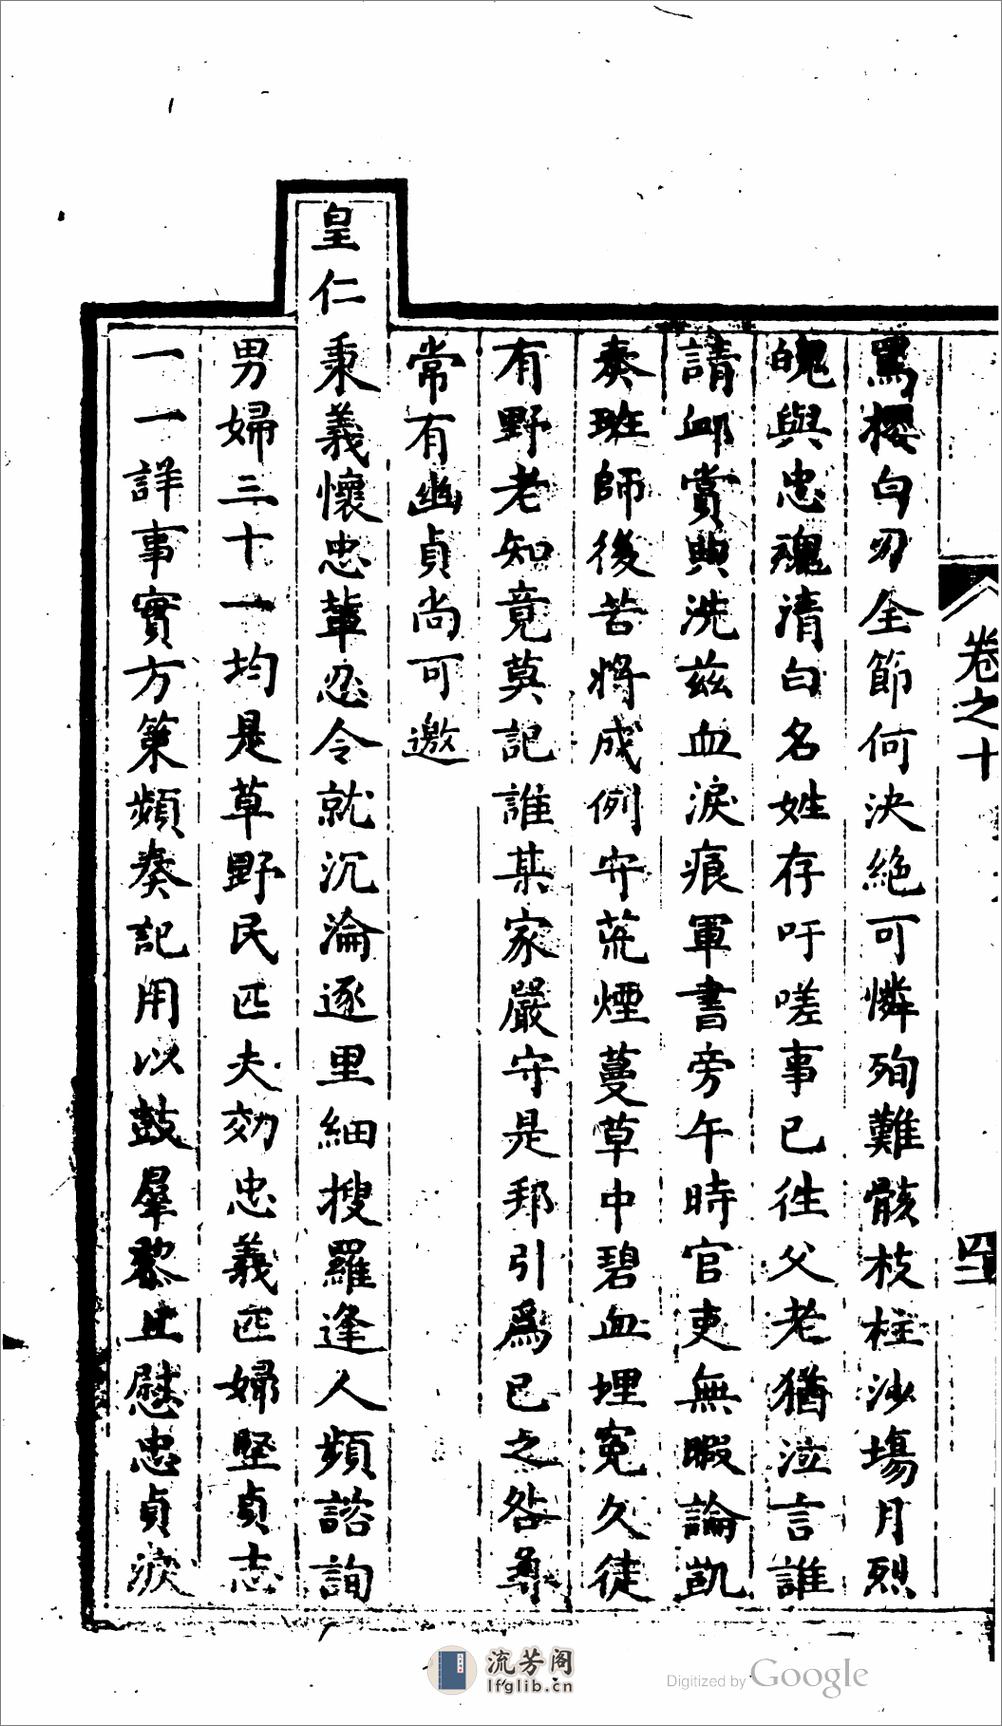 卷之十
四
罵櫻白刃全節何決絕可憐殉難骸枝柱沙場月烈
魄與忠魂清白名姓存吁嗟事已往父老猶泣言誰
請卹賞典洗茲血淚痕軍書旁午時官吏無暇論凱
奏班師後苦將成例守荒煙蔓草中碧血埋冤久徒
有野老知竟莫記誰某家嚴守是邦引為已之咎尋
常有幽貞尚可邀
皇仁秉義懷忠輩忍令就沉淪逐里細搜羅逢人頻諮詢
男婦三十一均是草野民匹夫効忠義匹婦堅貞志
一一詳事實方策頻奏記用以鼓羣黎且慰忠貞淚
流芳阁
lfglib.cn
Digitized by Google